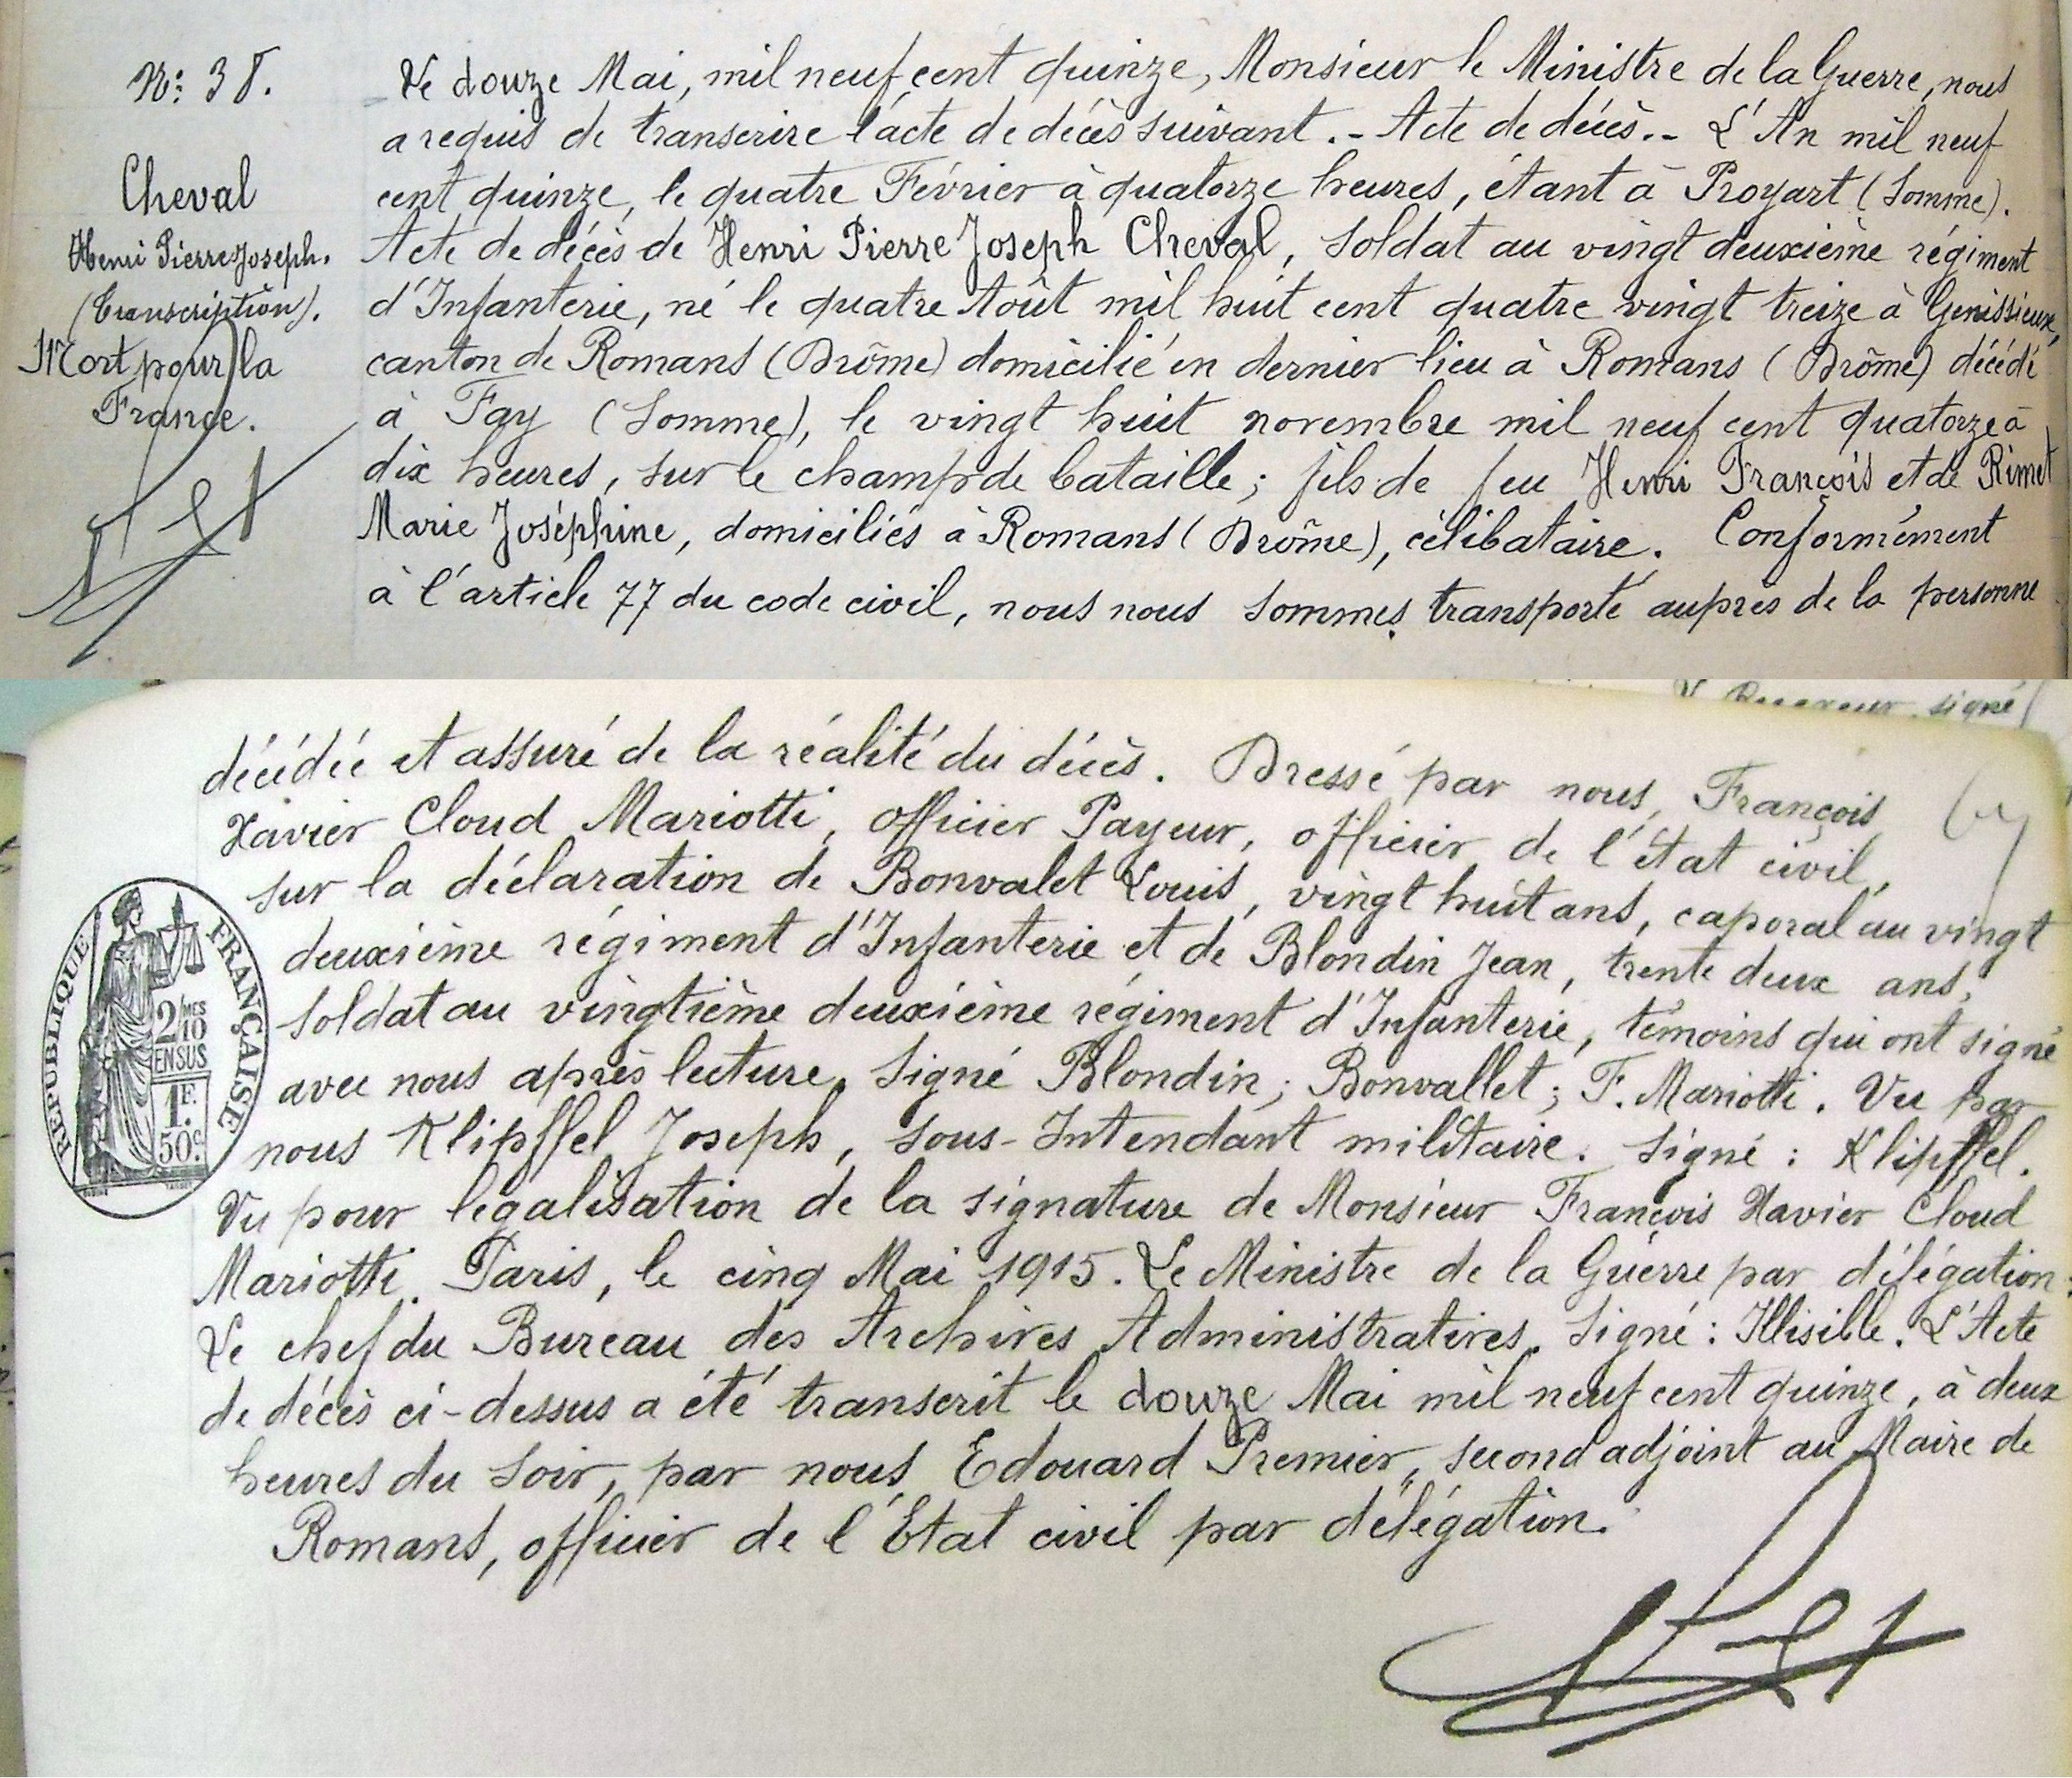 N°: 38.
Cheval
Henri Pierre Joseph.
(Transcription).
Mort pour la
France.
Le douze Mai, mil neuf cent quinze, Monsieur le Ministre de la Guerre, nous
a requis de transcrire l'acte de décès suivant. - Acte de décès. - L'An mil neuf
cent quinze, le quatre Février à quatorze heures, étant à Proyart (Somme).
Acte de décès de Henri Pierre Joseph Cheval, Soldat au vingt deuxième régiment
d'Infanterie, né le quatre Août mil huit cent quatre vingt treize à Genissieux,
canton de Romans (Drôme) domicilié en dernier lieu à Romans (Drôme) décédé
à Fay (Somme), le vingt huit novembre mil neuf cent quatorze à
dix heures, sur le champ de bataille; fils de feu Henri François et de Rimet
Marie Joséphine, domiciliés à Romans (Drôme), célibataire. Conformément
à l'article 77 du code civil, nous nous sommes transporté auprès de la personne
signé
décédée et assuré de la réalité du décès. Dressé par nous, François
Xavier Cloud Mariotti, officier Payeur, officier de l'état civil,
sur la déclaration de Bonvalet Louis, vingt huit ans, caporal au vingt
deuxième régiment d'Infanterie et de Blondin Jean, trente deux ans,
soldat au vingtième deuxième régiment d'Infanterie, témoins qui ont signé
avec nous après lecture. Signé Blondin; Bonvallet; F. Mariotti. Vu par
nous Klipffel Joseph, Sous-Intendant militaire. Signé: Klipffel.
Vu pour légalisation de la signature de Monsieur François Xavier Cloud
Mariotti. Paris, le cinq Mai 1915. Le Ministre de la Guerre par délégation
Le chef du Bureau des Archives Administratives. Signé: Illisible. L'Acte
de décès ci-dessus a été transcrit le douze Mai mil neuf cent quinze, à deux
heures du soir, par nous Edouard Premier, second adjoint au Maire de
Romans, officier de l'Etat civil par délégation.
RÉPUBLIQUE FRANÇAISE
2/10 MES
EN SUS
1F.
50c.